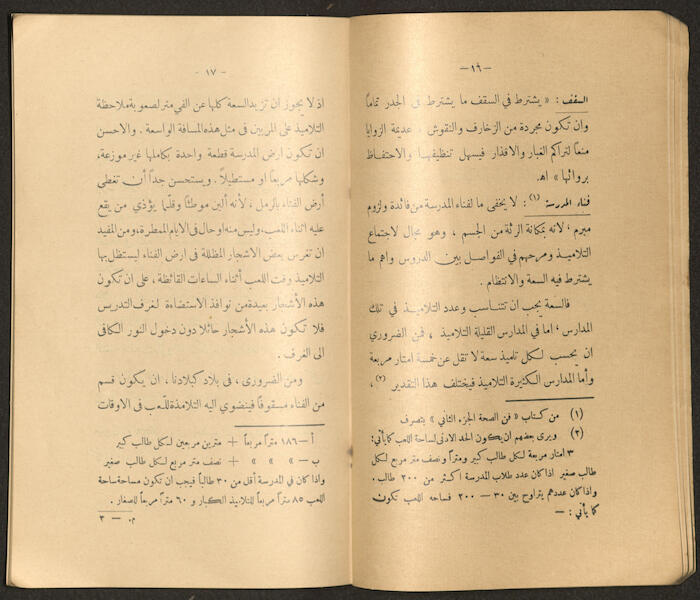 — ١٦ —
السقف : « يشترط في السقف ما يشترط في الجدر تماماً
وان تكون مجردة من الزخارف والنقوش ، عديمة الزوايا
منعاً لتراكم الغبار والاقذار فيسهل تنظيفها والاحتفاظ
بروائها » اهـ
فناء المدرسة (١) : لا يخفى ما لفناء المدرسة من فائدة ولزوم
مبرم ، لانه بمكانة الرئة من الجسم ، وهو مجال لاجتماع
التلاميذ ومرحهم في الفواصل بين الدروس واهم ما
يشترط فيه السعة والانتظام .
فالسعة يجب ان تتناسب وعدد التلاميذ في تلك
المدارس ؛ اما في المدارس القليلة التلاميذ ، فمن الضروري
ان يحسب لكل تلميذ سعة لا تقل عن خمسة امتار مربعة
وأما المدارس الكثيرة التلاميذ فيختلف هذا التقدير (٢) ،
(١) من كتاب « فن الصحة الجزء الثاني » بتصرف
(٢) ويرى بعضهم ان يكون الحد الادنى لساحة اللعب كما يأتي :
٣ امتار مربعة لكل طالب كبير ومتراً ونصف متر مربع لكل
طالب صغير اذا كان عدد طلاب المدرسة اكثر من ٢٠٠ طالب .
واذا كان عددهم يتراوح بين ٣٠ — ٢٠٠ فساحه اللعب تكون
كما يأتي : —
- ١٧ -
اذ لا يجوز ان تزيد السعة كلها عن الفي متر لصعوبة ملاحظة
التلاميذ على المربين في مثل هذه المسافة الواسعة . والاحسن
ان تكون ارض المدرسة قطعة واحدة بكاملها غير موزعة ،
وشكلها مربعاً او مستطيلاً . ويستحسن جداً أن تغطى
أرض الفناء بالرمل ، لأنه ألين موطئاً وقلما يؤذي من يقع
عليه اثناء اللعب ، وليس منه اوحال في الايام الممطرة ، ومن المفيد
ان تغرس بعض الاشجار المظللة في ارض الفناء ليستظل بها
التلاميذ وقت اللعب أثناء الساعات القائظة ، على ان تكون
هذه الأشجار بعيدة من نوافذ الاستضاءة لغرف التدريس
فلا تكون هذه الأشجار حائلاً دون دخول النور الكافي
الى الغرف .
ومن الضروري ، في بلاد كبلادنا ، ان يكون قسم
من الفناء مسقوفاً فينضوي اليه التلامذة للعب في الاوقات
أ — ١٨٦ متراً مربعاً + مترين مربعين لكل طالب كبير
ب — » » » + نصف متر مربع لكل طالب صغير
واذا كان في المدرسة أقل من ٣٠ طالباً فيجب ان تكون مساحة ساحة
اللعب ٨٥ متراً مربعاً للتلاميذ الكبار و ٦٠ متراً مربعاً للصغار .
م . — ٢